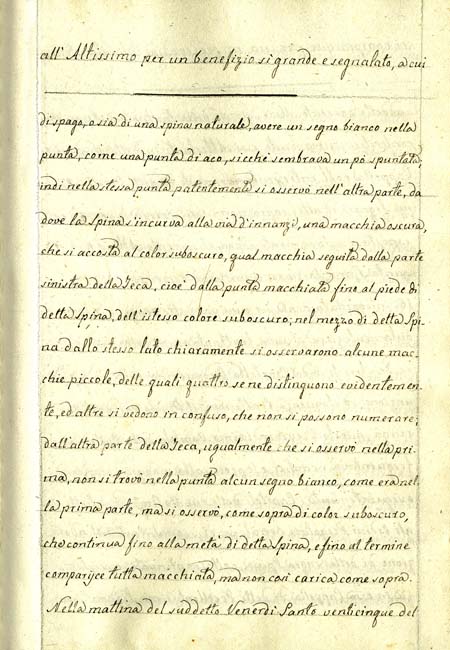 all' Altissimo per un benefizio si grande e segnalato, a cui
di spago, o sia di una spina naturale, avere un segno bianco nella
punta, come una punta di aco, sicchè sembrava un pò spuntata;
indi nella stessa punta patentemente si osservò nell'altra parte, da
dove la Spina s'incurva alla via d'innanzi, una macchia oscura,
che si accosta al color suboscuro, qual macchia seguita dalla parte
sinistra della Teca, cioè dalla punta macchiata fino al piede di
detta Spina, dell'istesso colore suboscuro; nel mezzo di detta Spi-
na dallo stesso lato chiaramente si osservarono alcune mac-
chie piccole, delle quali quattro se ne distinguono evidentemen-
te, ed altre si vedono in confuso, che non si possono numerare;
dall'altra parte della Teca, ugualmente che si osservò nella pri-
ma, non si trovò nella punta alcun segno bianco, come era nel-
la prima parte, ma si osservò, come sopra di color suboscuro,
che continva fino alla metà di detta Spina, e fino al termine
comparisce tutta macchiata, ma non così carica come sopra.
Nella mattina del suddetto Venerdi Santo venticinque del